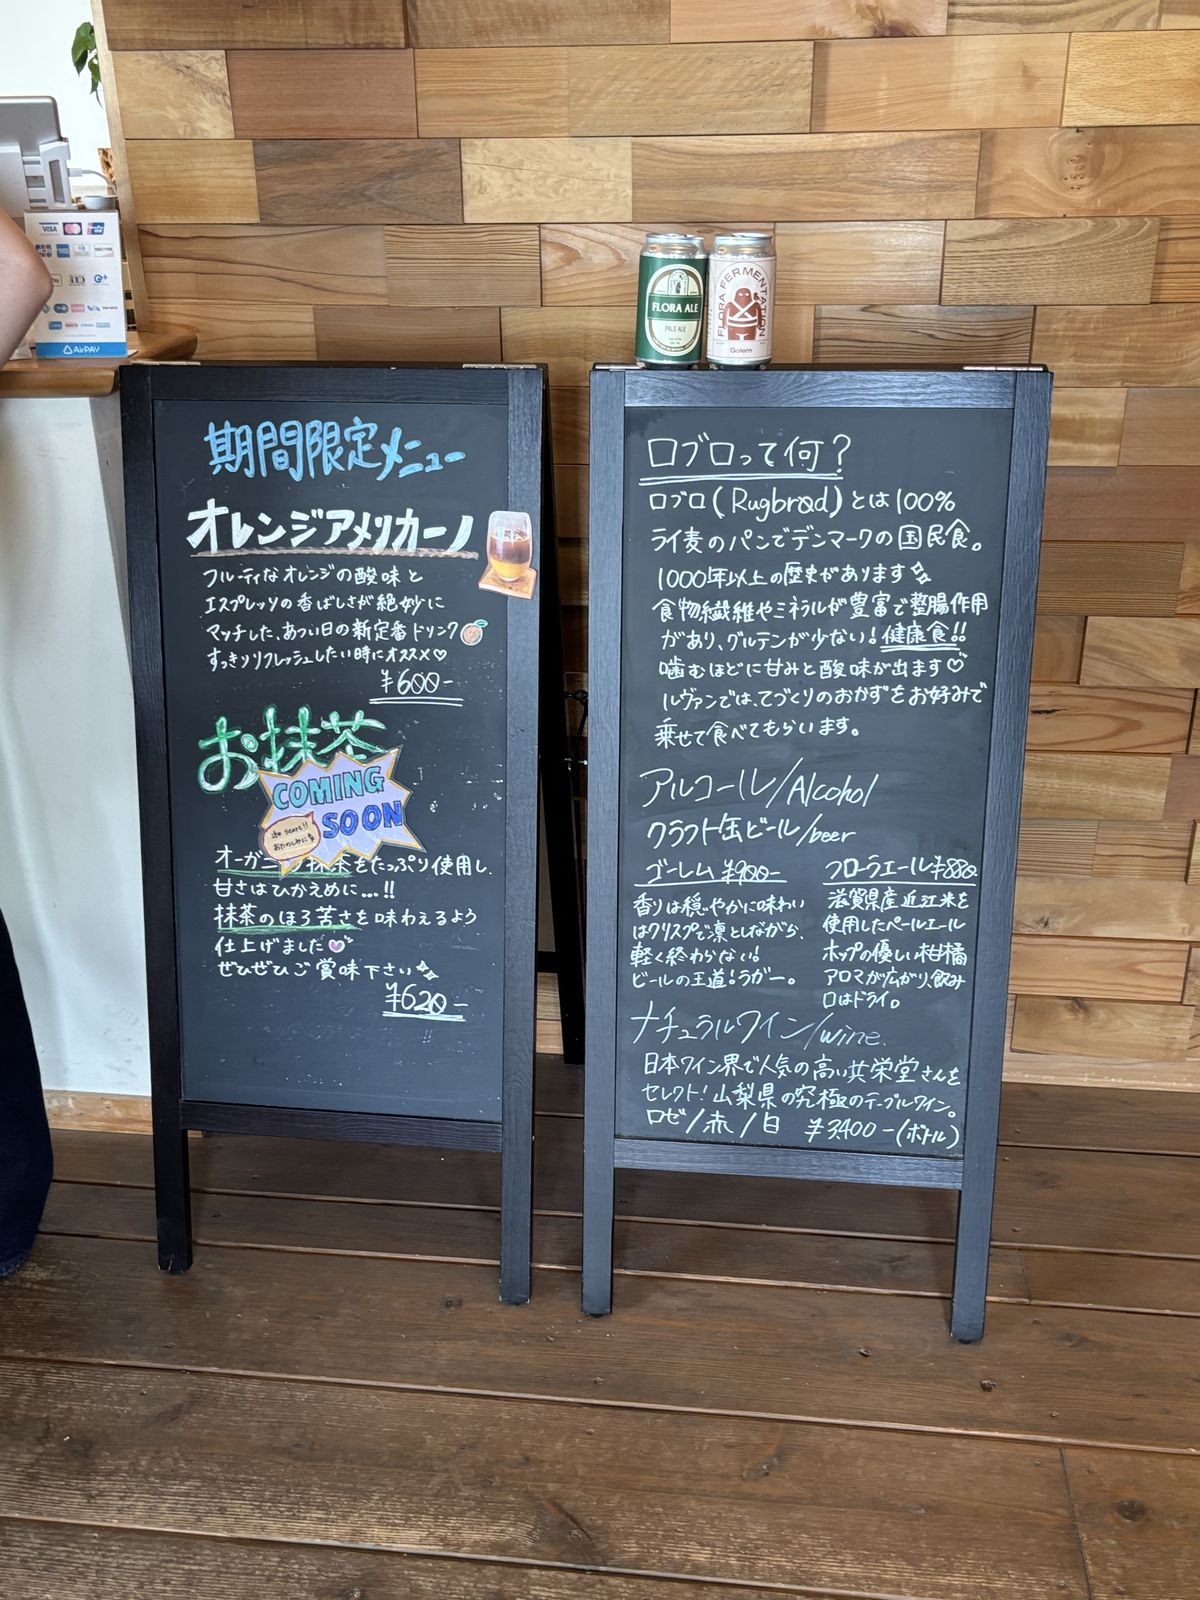 VISA
AirPAY
FLORA ALE
PALE ALE
FLORA FERMENTATION
Golem
期間限定メニュー
オレンジアメリカーノ
フルーティなオレンジの酸味と
エスプレッソの香ばしさが絶妙に
マッチした、あつい日の新定番ドリンク
すっきりリフレッシュしたい時にオススメ♡
¥600-
お抹茶
COMING
SOON
オーガニック抹茶をたっぷり使用し、
甘さはひかえめに...!!
抹茶のほろ苦さを味わえるよう
仕上げました
ぜひぜひご賞味下さい
¥620-
ロブロって何?
ロブロ(Rugbrød)とは100%
ライ麦のパンでデンマークの国民食。
1000年以上の歴史があります
食物繊維やミネラルが豊富で整腸作用
があり、グルテンが少ない!健康食!!
噛むほどに甘みと酸味が出ます♡
ルヴァンでは、てづくりのおかずをお好みで
乗せて食べてもらいます。
アルコール/Alcohol
クラフト缶ビール/beer
ゴーレム ¥900-
香りは穏やかに味わい
はクリスプで凛としながら、
軽く終わらない!
ビールの王道!ラガー。
フローラエール¥880-
滋賀県産近江米を
使用したペールエール
ホップの優しい柑橘
アロマが広がり、飲み
口はドライ。
ナチュラルワイン/wine.
日本ワイン界で人気の高い共栄堂さんを
セレクト!山梨県の究極のテーブルワイン。
ロゼ/赤/白 ¥3,400-(ボトル)